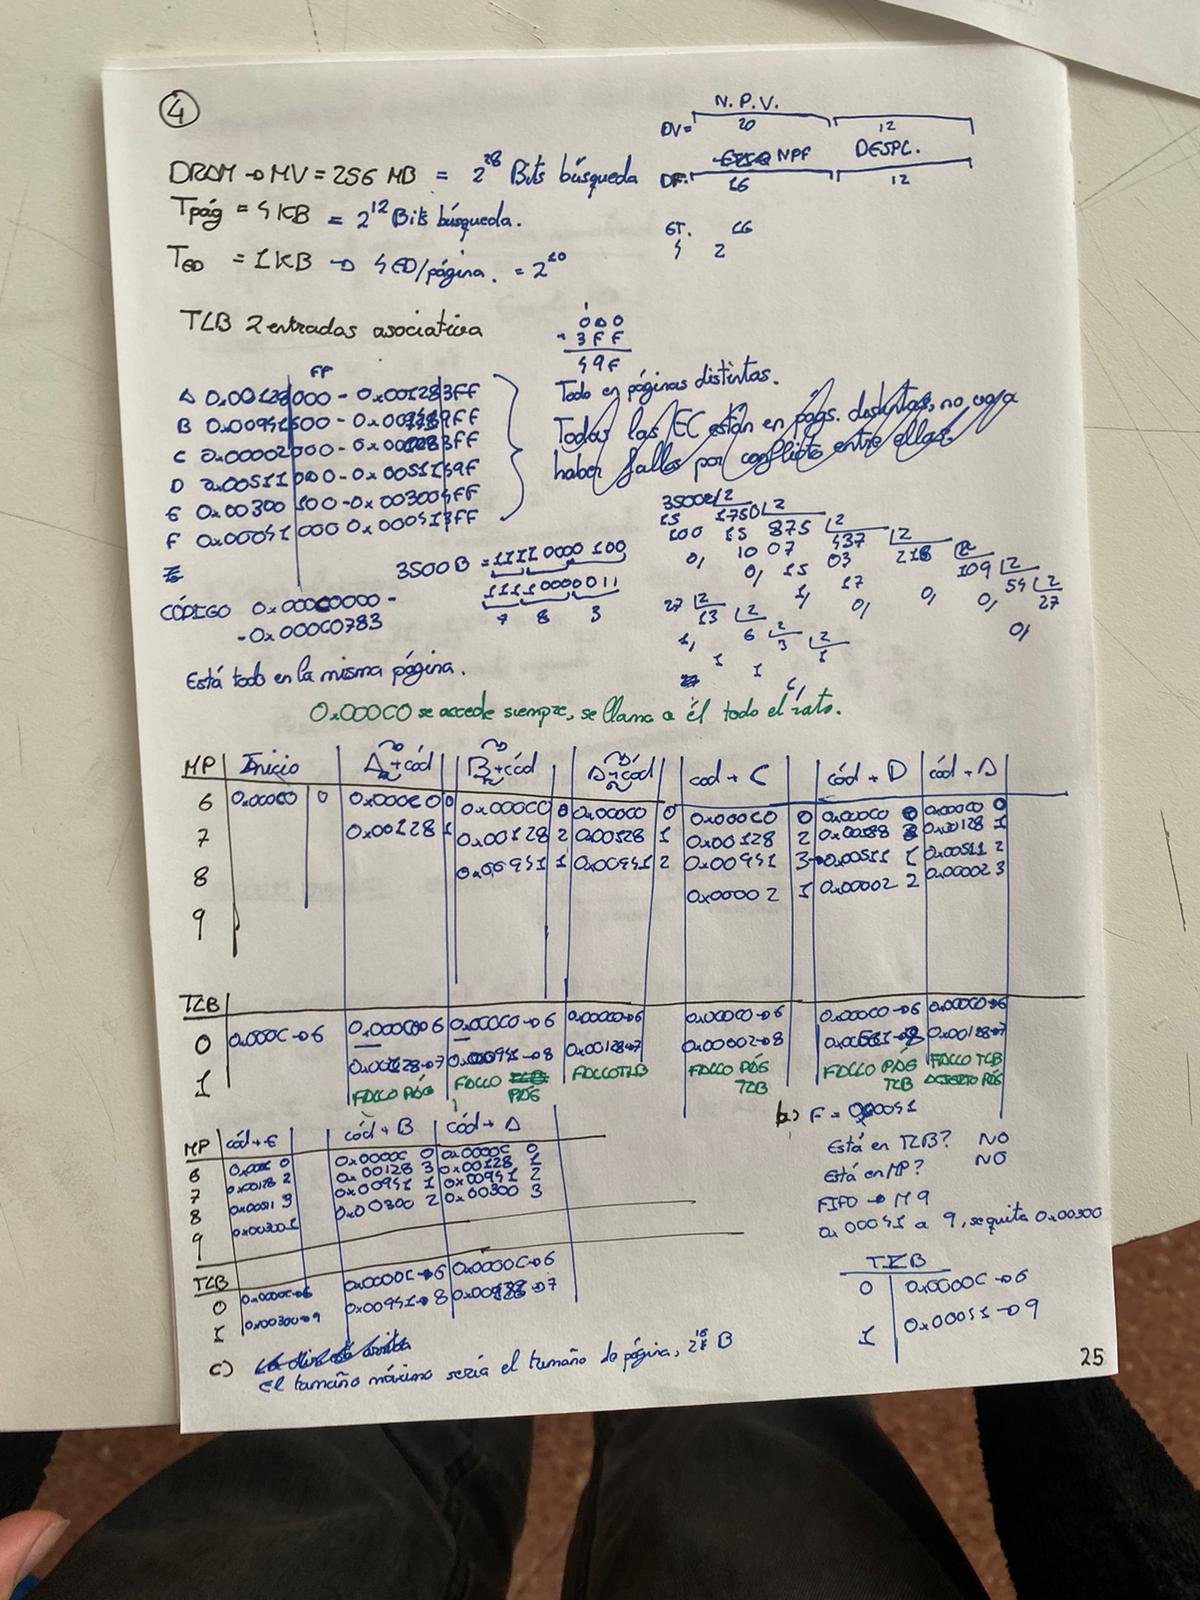 4
N.P.V.
DV= 20 12
NPF DESPL.
DF: 16 12
DRAM → MV = 256 MB = 2^28 Bits búsqueda
Tpág = 4KB = 2^12 Bits búsqueda.
ET. CG
4 2
TED = 1KB → 4ED/página. = 2^10
TLB 2 entradas asociativa
000
3FF
49F
FP
A 0x00128000 - 0x001283FF
B 0x00941
C 0x00002000 - 3FF
D 0x00511 - 0x00511
E 0x00300 100 - 0x003004FF
F 0x00041 000 0x000413FF
Todo en páginas distintas.
Todas las EC están en págs. distintas, no va a
haber fallos por conflicto entre ellas
3500B = 1111 0000 100
1111 0000 011
7 8 3
CÓDIGO 0x000C0000 -
-0x000C0783
3500 2
15 1750 2
100 15 875 2
0, 10 07 437 2
0, 15 03 218 2
1, 17 109 2
0, 54 2
0, 27
0,
27 2
1, 13 2
6 2
3 2
1
1 1
Está todo en la misma página.
0x000C0 se accede siempre, se llama a él todo el rato.
MP Inicio A+cód B+cód A+cód cod + C cód + D cód + A
6 0x000C0 0 0x000C0 0 0x000C0 0 0x000C0 0 0x000C0 0 0x000C0 0 0x000C0 0
7 0x00128 1 0x00128 2 0x00128 1 0x00128 2 0x00128 1
8 0x00941 1 0x00941 2 0x00941 3 0x00511 1 0x00511 2
9 0x00002 1 0x00002 2 0x00002 3
TLB
0 0x000C→6 0x000C0→6 0x000C0→6 0x000C0→6 0x000C0→6 0x000C0→6 0x000C0→6
1 0x00128→7 0x00941→8 0x00128→7 0x00002→8 0x00128→7
FALLO PÁG FALLO PÁG FALLO TLB FALLO PÁG TLB FALLO PÁG TLB FALLO TLB ACIERTO PÁG
MP cód + E cód + B cód + A
6 0x000C 0 0x0000C 0 0x0000C 0
7 0x00128 2 0x00128 3 0x00128 1
8 0x00511 3 0x00941 1 0x00941 2
9 0x00300 1 0x00300 2 0x00300 3
TLB
0 0x0000C→6 0x0000C→6 0x0000C→6
1 0x00300→9 0x00941→8 →7
b) F = 0x00041
Está en TLB? NO
Está en MP? NO
FIFO → M 9
0x00041 a 9, se quita 0x00300
TLB
0 0x0000C→6
1 0x00041→9
c) El tamaño máximo sería el tamaño de página, B
25